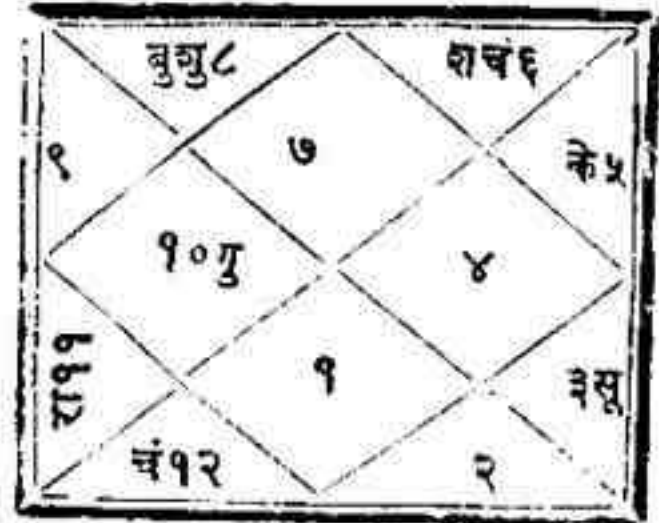 बुशु८
शचं६
९
७
के५
१०गु
४
रा११
१
३सू
चं१२
२